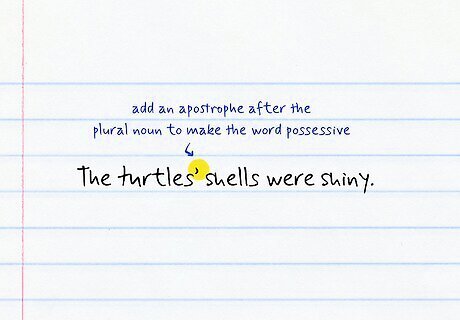 add an apostrophe after the
plural noun to make the word possessive
The turtles' shells were shiny.